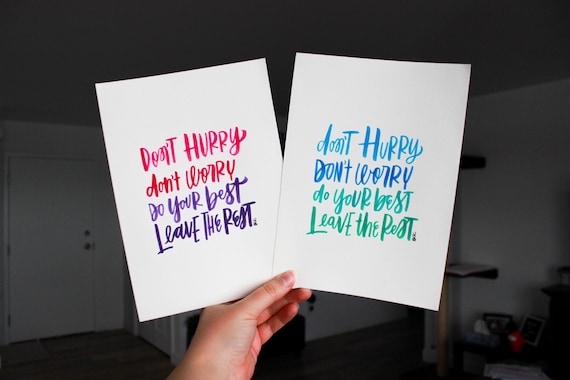 DON'T HURRY
don't WORRY
Do YOUR bEST
LEAVE THE REST.
don't HURRY
DON'T WORRY
do YOUR BEST
LEAVE the REST.